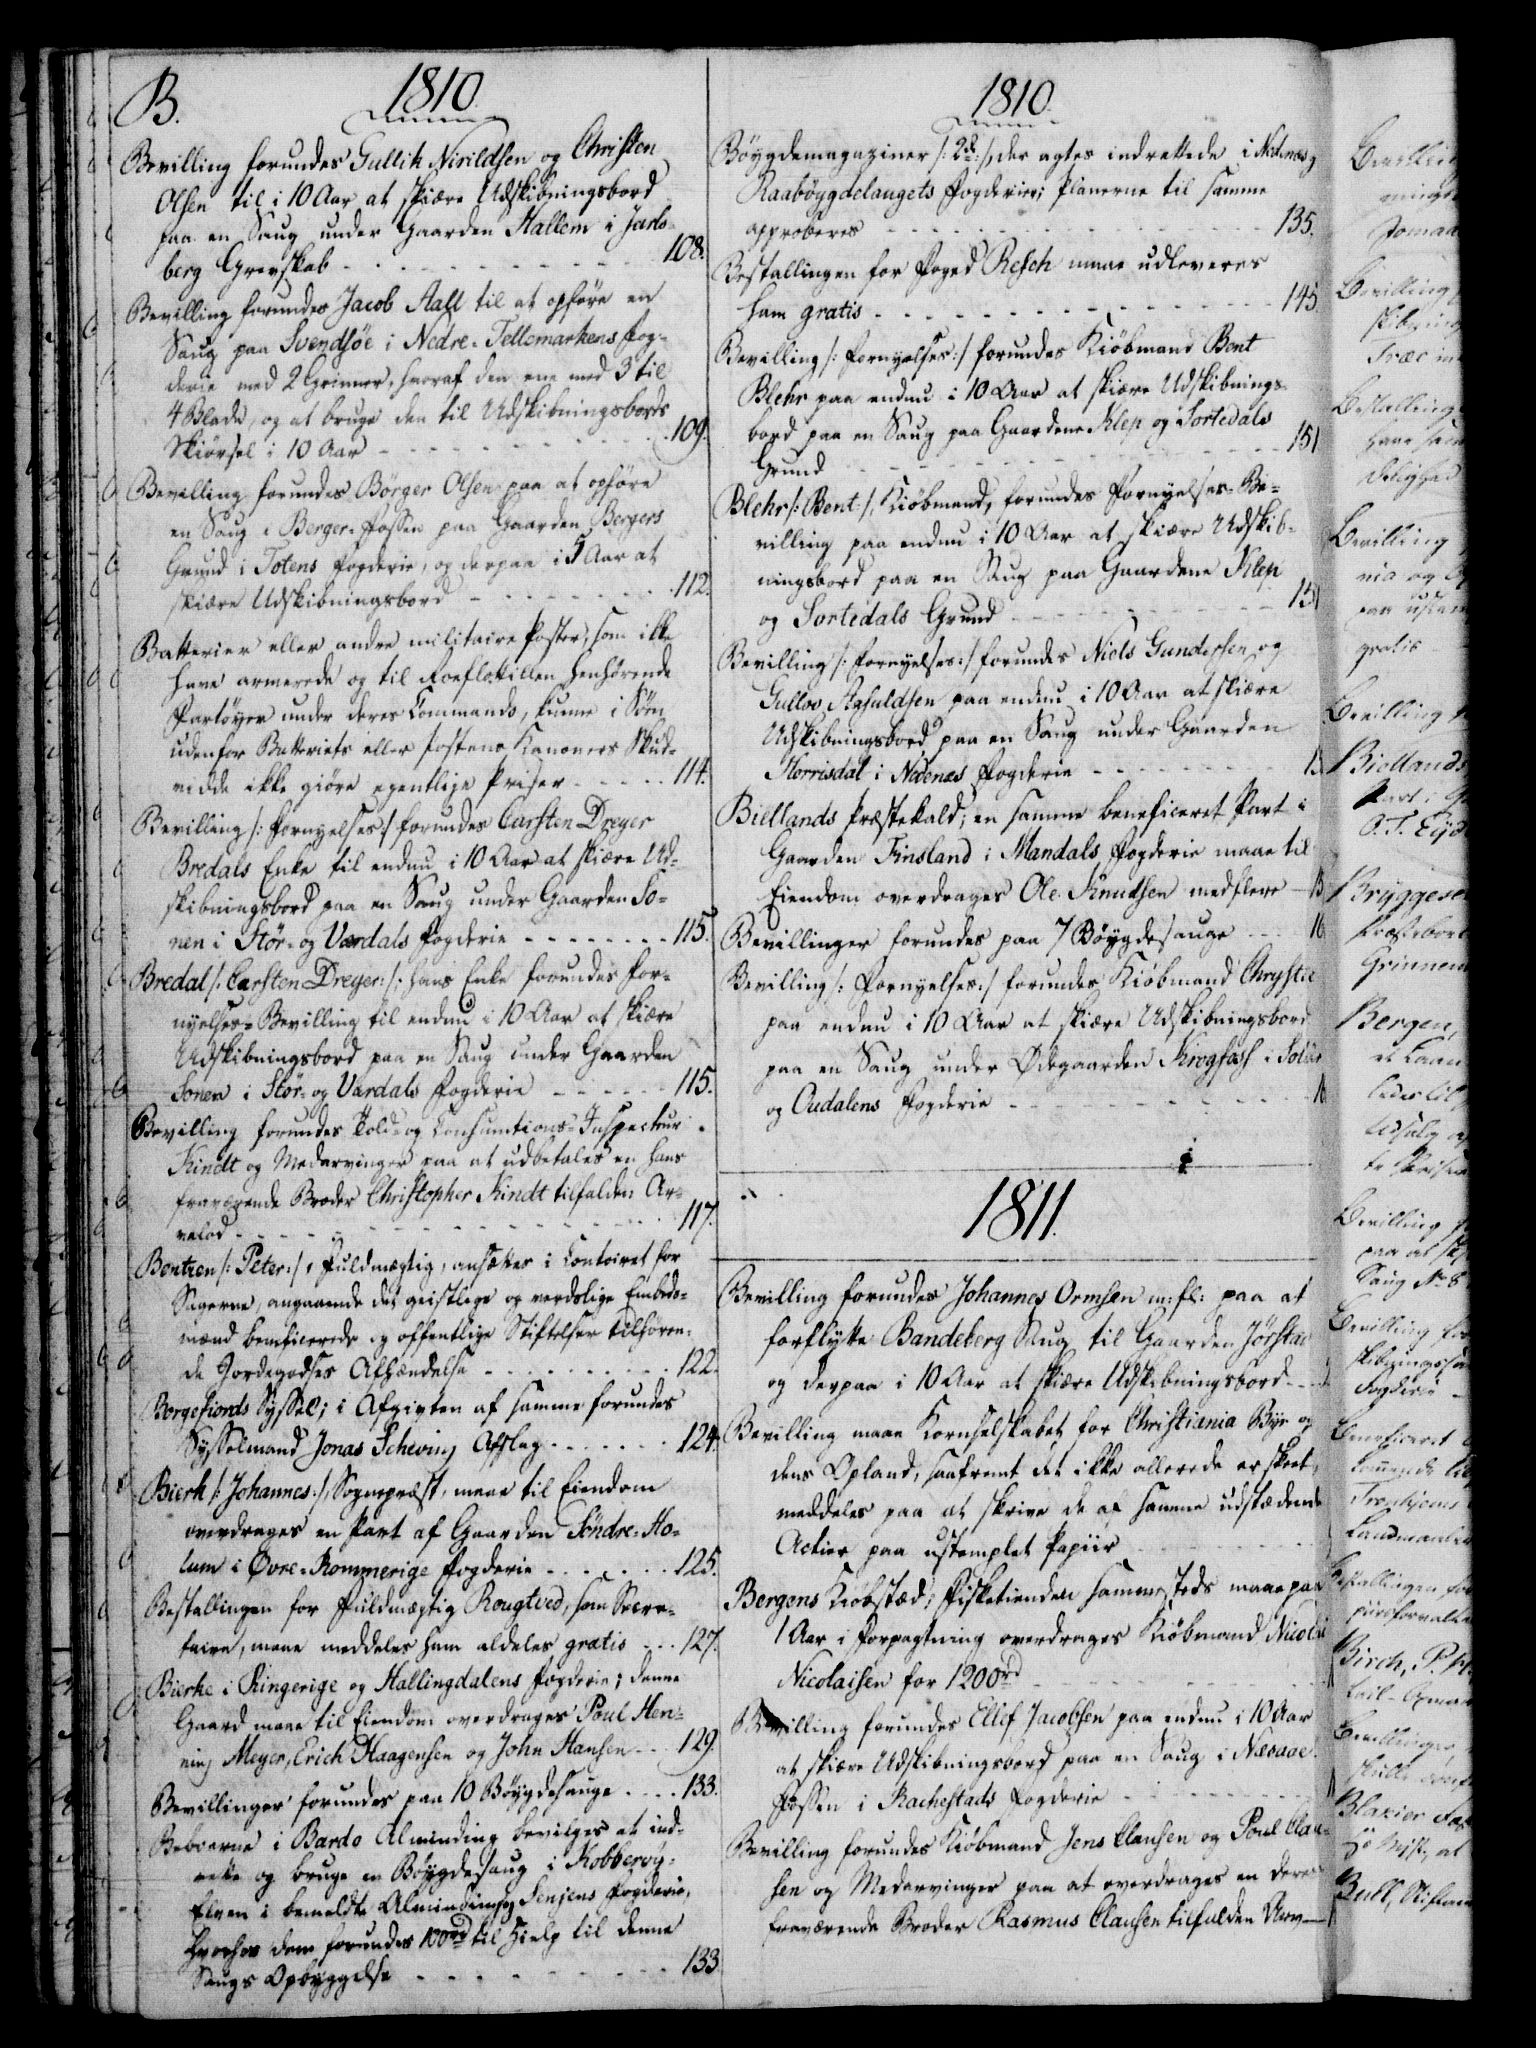 B.
1810.
Bevilling forundes Gullik Nirildsen og Christen
Olsen til i 10 Aar at skiære Udskibningsbord
paa en Saug under Gaarden Hallem i Jarls-
berg Grevskab 108.
Bevilling forundes Jacob Aall til at opføre en
Saug paa Svendsöe i Nedre-Tellemarkens Fog-
derie med 2 Grinner, hvoraf den ene med 3 til
4 Blade, og at bruge den til Udskibningsbords
Skiörsel i 10 Aar 109.
Bevilling forundes Börger Olsen paa at opføre
en Saug i Berger-Fossen paa Gaarden Bergers
Grund i Totens Fogderie, og derpaa i 5 Aar at
skiære Udskibningsbord 112.
Batterier eller andre militaire Poster, som ikke
have armerede og til Roeflotillen henhörende
Fartöyer under deres Commando, kunne i Söen
udenfor Batteriets eller Postens Kanoners Skud-
vidde ikke giöre egentlige Priser 114.
Bevilling /: Fornyelses :/ forundes Carsten Dreyer
Bredals Enke til endnu i 10 Aar at skiære Ud-
skibningsbord paa en Saug under Gaarden So-
nen i Stör- og Værdals Fogderie 115.
Bredal /: Carsten Dreyer :/: hans Enke forundes For-
nyelses-Bevilling til endnu i 10 Aar at skiære
Udskibningsbord paa en Saug under Gaarden
Sonen i Stör- og Værdals Fogderie 115.
Bevilling forundes Told- og Consumtions-Inspecteur
Kindt og Medarvinger paa at udbetales en hans
fraværende Broder Christopher Kindt tilfalden Ar-
velod 117.
Bentzen /: Peter :/, Fuldmægtig, ansættes i Contoiret for
Sagerne, angaaende det geistlige og verdslige Embeds-
mænd beneficerede og offentlige Stiftelser tilhören-
de Jordegodses Afhændelse 122.
Borgefiords Syssel; i Afgivten af samme forundes
Sysselmand Jonas Scheving Afslag 124.
Bierk /: Johannes :/, Sognepræst, maae til Eiendom
overdrages en Part af Gaarden Söndre-Ho-
lum i Øvre-Rommerige Fogderie 125.
Bestallingen for Fuldmægtig Rougtved, som Secre-
taire, maae meddeles ham aldeles gratis 127.
Bierke i Ringerige og Hallingdalens Fogderie; denne
Gaard maae til Eiendom overdrages Poul Hen-
ning Meyer, Erich Haagensen og John Hansen 129.
Bevillinger forundes paa 10 Böygdesauge 133.
Beboerne i Bardo Alminding bevilges at ind-
rette og bruge en Böygdesaug i Kobberöy-
Elven i bemeldte Alminding Senjens Fogderie,
hvorhos dem forundes 100 rd til Hielp til denne
Saugs Opbyggelse 133
1810.
Böygdemagaziner /: 2de :/, der agtes indrettede i Nedenæs og
Raaböygdelaugets Fogderier; Planerne til samme
approberes 135.
Bestallingen for Foged Resch maae udleveres
ham gratis 145.
Bevilling /: Fornyelses :/ forundes Kiöbmand Bent
Blehr paa endnu i 10 Aar at skiære Udskibnings-
bord paa en Saug paa Gaardene Klep og Sortedals
Grund 151
Blehr /: Bent :/, Kiöbmand, forundes Fornyelses-Be-
villing paa endnu i 10 Aar at skiære Udskib-
ningsbord paa en Saug paa Gaardene Klep
og Sortedals Grund 151
Bevilling /: Fornyelses :/ forundes Niels Gundersen og
Gullov Aasuldsen paa endnu i 10 Aar at skiære
Udskibningsbord paa en Saug under Gaarden
Herrisdal i Nedenæs Fogderie
Biellands Præstekald; en samme beneficeret Part i
Gaarden Finsland i Mandals Fogderie maae til
Eiendom overdrages Ole Knudsen med flere
Bevillinger forundes paa 7 Böygdesauge
Bevilling /: Fornyelses :/ forundes Kiöbmand Chrystie
paa endnu i 10 Aar at skiære Udskibningsbord
paa en Saug under Ødegaarden Krogfoss i Solör
og Oudalens Fogderie
1811.
Bevilling forundes Johannes Ormsen m: fl: paa at
forflytte Bandeberg Saug til Gaarden Jörstad
og derpaa i 10 Aar at skiære Udskibningsbord
Bevilling maae Kornselskabet for Christiania Bye og
dens Opland, saafremt det ikke allerede er skeet,
meddeles paa at skrive de af samme udstædende
Actier paa ustemplet Papiir
Bergens Kiöbstæd; Fisketienden sammesteds maae paa
1 Aar i Forpagtning overdrages Kiöbmand Nicolai
Nicolaisen for 1200 rd
Bevilling forundes Ellef Jacobsen paa endnu i 10 Aar
at skiære Udskibningsbord paa en Saug i Næsaae-
Fossen i Rachestads Fogderie
Bevilling forundes Kiöbmand Jens Clausen og Poul Clau-
sen og Medarvinger paa at overdrages en deres
fraværende Broder Rasmus Clausen tilfalden Arv
Biellands
O. T. Eyd
Bryggese
Grinnem
Bergen,
Birch, P.
Bull, Stiftam